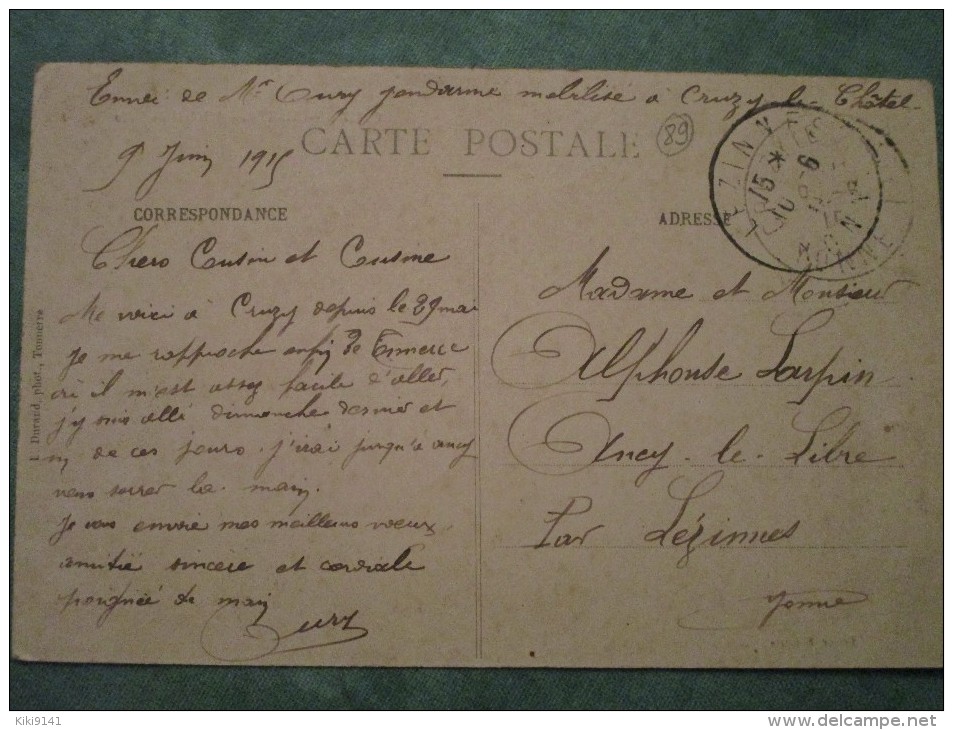 Envoi de Mr Cury gendarme mobilisé à Cruzy-le-Châtel
9 Juin 1915
CARTE POSTALE
89
LEZINNES
YONNE
15 *
10 6
CORRESPONDANCE
ADRESSE
Chers Cousin et Cusine
Me voici à Cruzy depuis le 29 mai
Je me rapproche enfin de
où il m'est assez facile d'aller,
j'y suis allé dimanche dernier et
un de ces jours j'irai jusqu'à ancy
vous serrer la main.
Je vous envoie mes meilleurs voeux,
amitié sincère et cordiale
poignée de main
Cury
Madame et Monsieur
Alphonse Larpin
Ancy-le-Libre
Par Lézinnes
Yonne
L. Durand, phot., Tonnerre
Kiki9141
www.delcampe.net